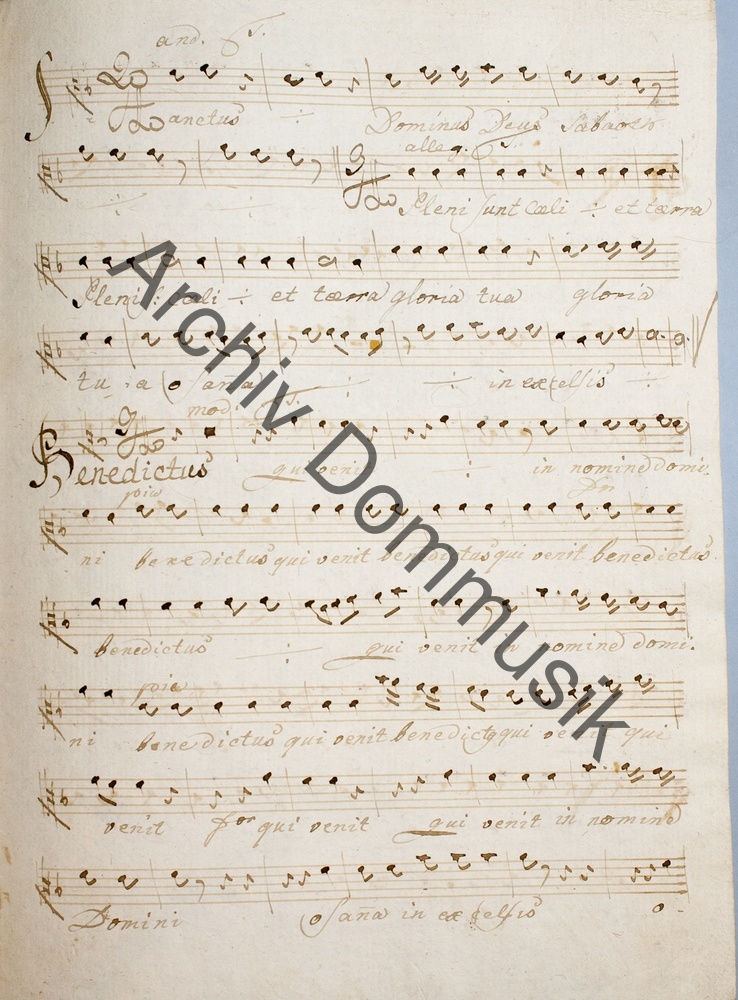 and. T.
Sanctus ÷ Dominus Deus Sabaoth
alleg. T.
÷ ÷ Pleni sunt Cœli ÷ et tærra
Pleni S: Cœli ÷ et tærra gloria tua gloria
tu - a Osaña ÷ ÷ in excelsis ÷
mod. T.
Benedictus qui venit ÷ in nomine domi.
pia
ni benedictus qui venit benedictus qui venit benedictus
benedictus ÷ qui venit in nomine domi.
pia
ni benedictus qui venit benedictq qui venit qui
venit qui venit qui venit in nomine
Domini Osaña in excelsis o -
Archiv Dommusik